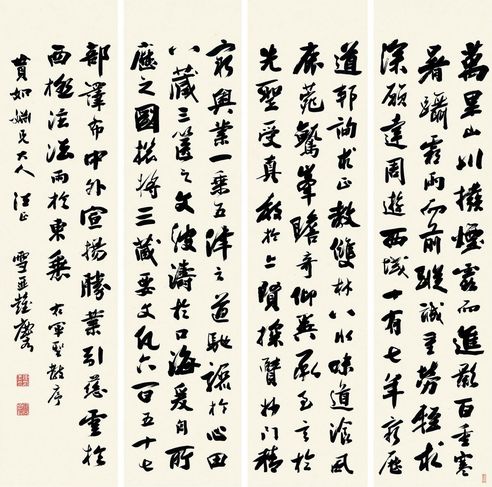 萬里山川撥煙霞而進影百重寒
暑躡霜雨而前蹤誠重勞輕求
深願達周遊西域十有七年窮歷
道邦詢求正教雙林八水味道湌風
鹿菀鷲峯瞻奇仰異承至言於
先聖受真教於上賢探賾妙門精
窮奧業一乘五律之道馳驟於心田
八藏三篋之文波濤於口海爰自所
歷之國揔將三藏要文凡六百五十七
部譯布中外宣揚勝業引慈雲於
西極注法雨於東垂 右軍聖教序
如姻兄大人法正 雪